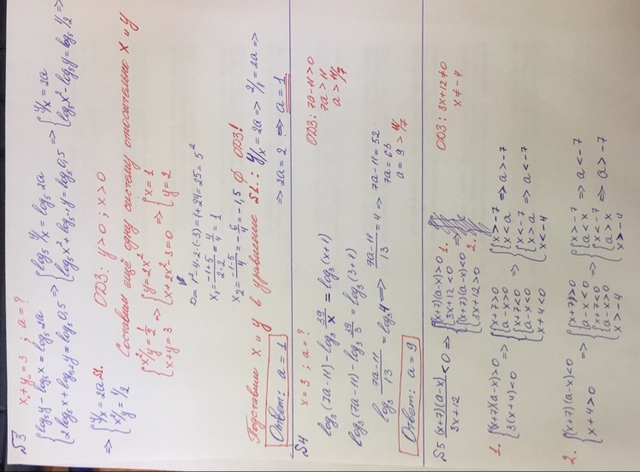 №3 x+y=3 ; a=?
{log₅y - log₅x = log₅2a
{2log₅x + log₀,₂y = log₅0,5 ⇒ {log₅ y/x = log₅2a
{log₅x² + log₅₋₁y = log₅0,5 ⇒ {y/x = 2a
{log₅x² - log₅y = log₅1/2 ⇒
⇒ {y/x = 2a
{x²/y = 1/2
ОДЗ: y>0 ; x>0
Составим ещё одну систему относительно x и y
{x²/y = 1/2
{x+y=3 ⇒ {y=2x²
{x+2x²-3=0 ⇒ {x=1
{y=2
D=1²-4·2·(-3)=1+24=25=5²
x₁= -1+5/2·2 = 4/4 = 1
x₂= -1-5/4 = -6/4 = -1,5 ∅ ОДЗ!
Подставим x и y в уравнение №1.: y/x = 2a ⇒ 2/1 = 2a ⇒
⇒ 2a=2 ⇒ a=1
Ответ: a=1
№4
x=3 ; a=?
log₃(7a-11) - log₃ 39/x = log₃(x+1)
ОДЗ: 7a-11>0
7a>11
a>11/7
log₃(7a-11) - log₃ 39/3 = log₃(3+1)
log₃ 7a-11/13 = log₃4 ⇒ 7a-11/13 = 4 ⇒ 7a-11=52
7a=63
a=9 > 11/7
Ответ: a=9
№5 (x+7)(a-x)/3x+12 < 0 ⇒ {(x+7)(a-x)>0
{3x+12<0 1.
{(x+7)(a-x)<0
{3x+12>0 2.
ОДЗ: 3x+12≠0
x≠-4
1. {(x+7)(a-x)>0
{3(x+4)<0 ⇒ {x+7>0
{a-x>0
{x+7<0
{a-x<0
{x+4<0 ⇒ {x>-7
{x<a ⇒ a>-7
{x<-7
{x>a ⇒ a<-7
x<-4
2. {(x+7)(a-x)<0
{x+4>0 ⇒ {x+7>0
{a-x<0
{x+7<0
{a-x>0
{x>-4 ⇒ {x>-7
{a<x ⇒ a<-7
{x<-7
{a>x ⇒ a>-7
x>-4